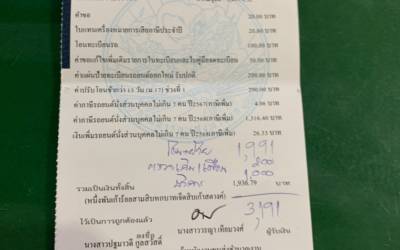 ค่าขอ 20.00 บาท
ใบแทนเครื่องหมายการเสียภาษีประจำปี 20.00 บาท
โอนทะเบียนรถ 100.00 บาท
ค่าขอแก้ไขเพิ่มเติมรายการในทะเบียนและในคู่มือจดทะเบียน 50.00 บาท
ค่าแผ่นป้ายทะเบียนรถยนต์ออกใหม่ รับปกติ 200.00 บาท
ค่าปรับโอนช้ากว่า 15 วัน (ม 17) ช่วงที่ 1 200.00 บาท
ค่าภาษีรถยนต์นั่งส่วนบุคคลไม่เกิน 7 คน ปี2567(ภาษีเพิ่ม) 4.06 บาท
ค่าภาษีรถยนต์นั่งส่วนบุคคลไม่เกิน 7 คน ปี2568(ภาษีเพิ่ม) 1,316.40 บาท
เงินเพิ่มรถยนต์นั่งส่วนบุคคลไม่เกิน 7 คน ปี2568(ภาษีเพิ่ม) 26.33 บาท
1,991
200
1,000
รวมเป็นเงินทั้งสิ้น 1,936.79 บาท
(หนึ่งพันเก้าร้อยสามสิบหกบาทเจ็ดสิบเก้าสตางค์)
3,191
ไว้เป็นการถูกต้องแล้ว
ลงชื่อ นางสาววรญา เทียมวงศ์ ผู้รับเงิน
นางสาวปฐมาวดี กูลสวัสดิ์